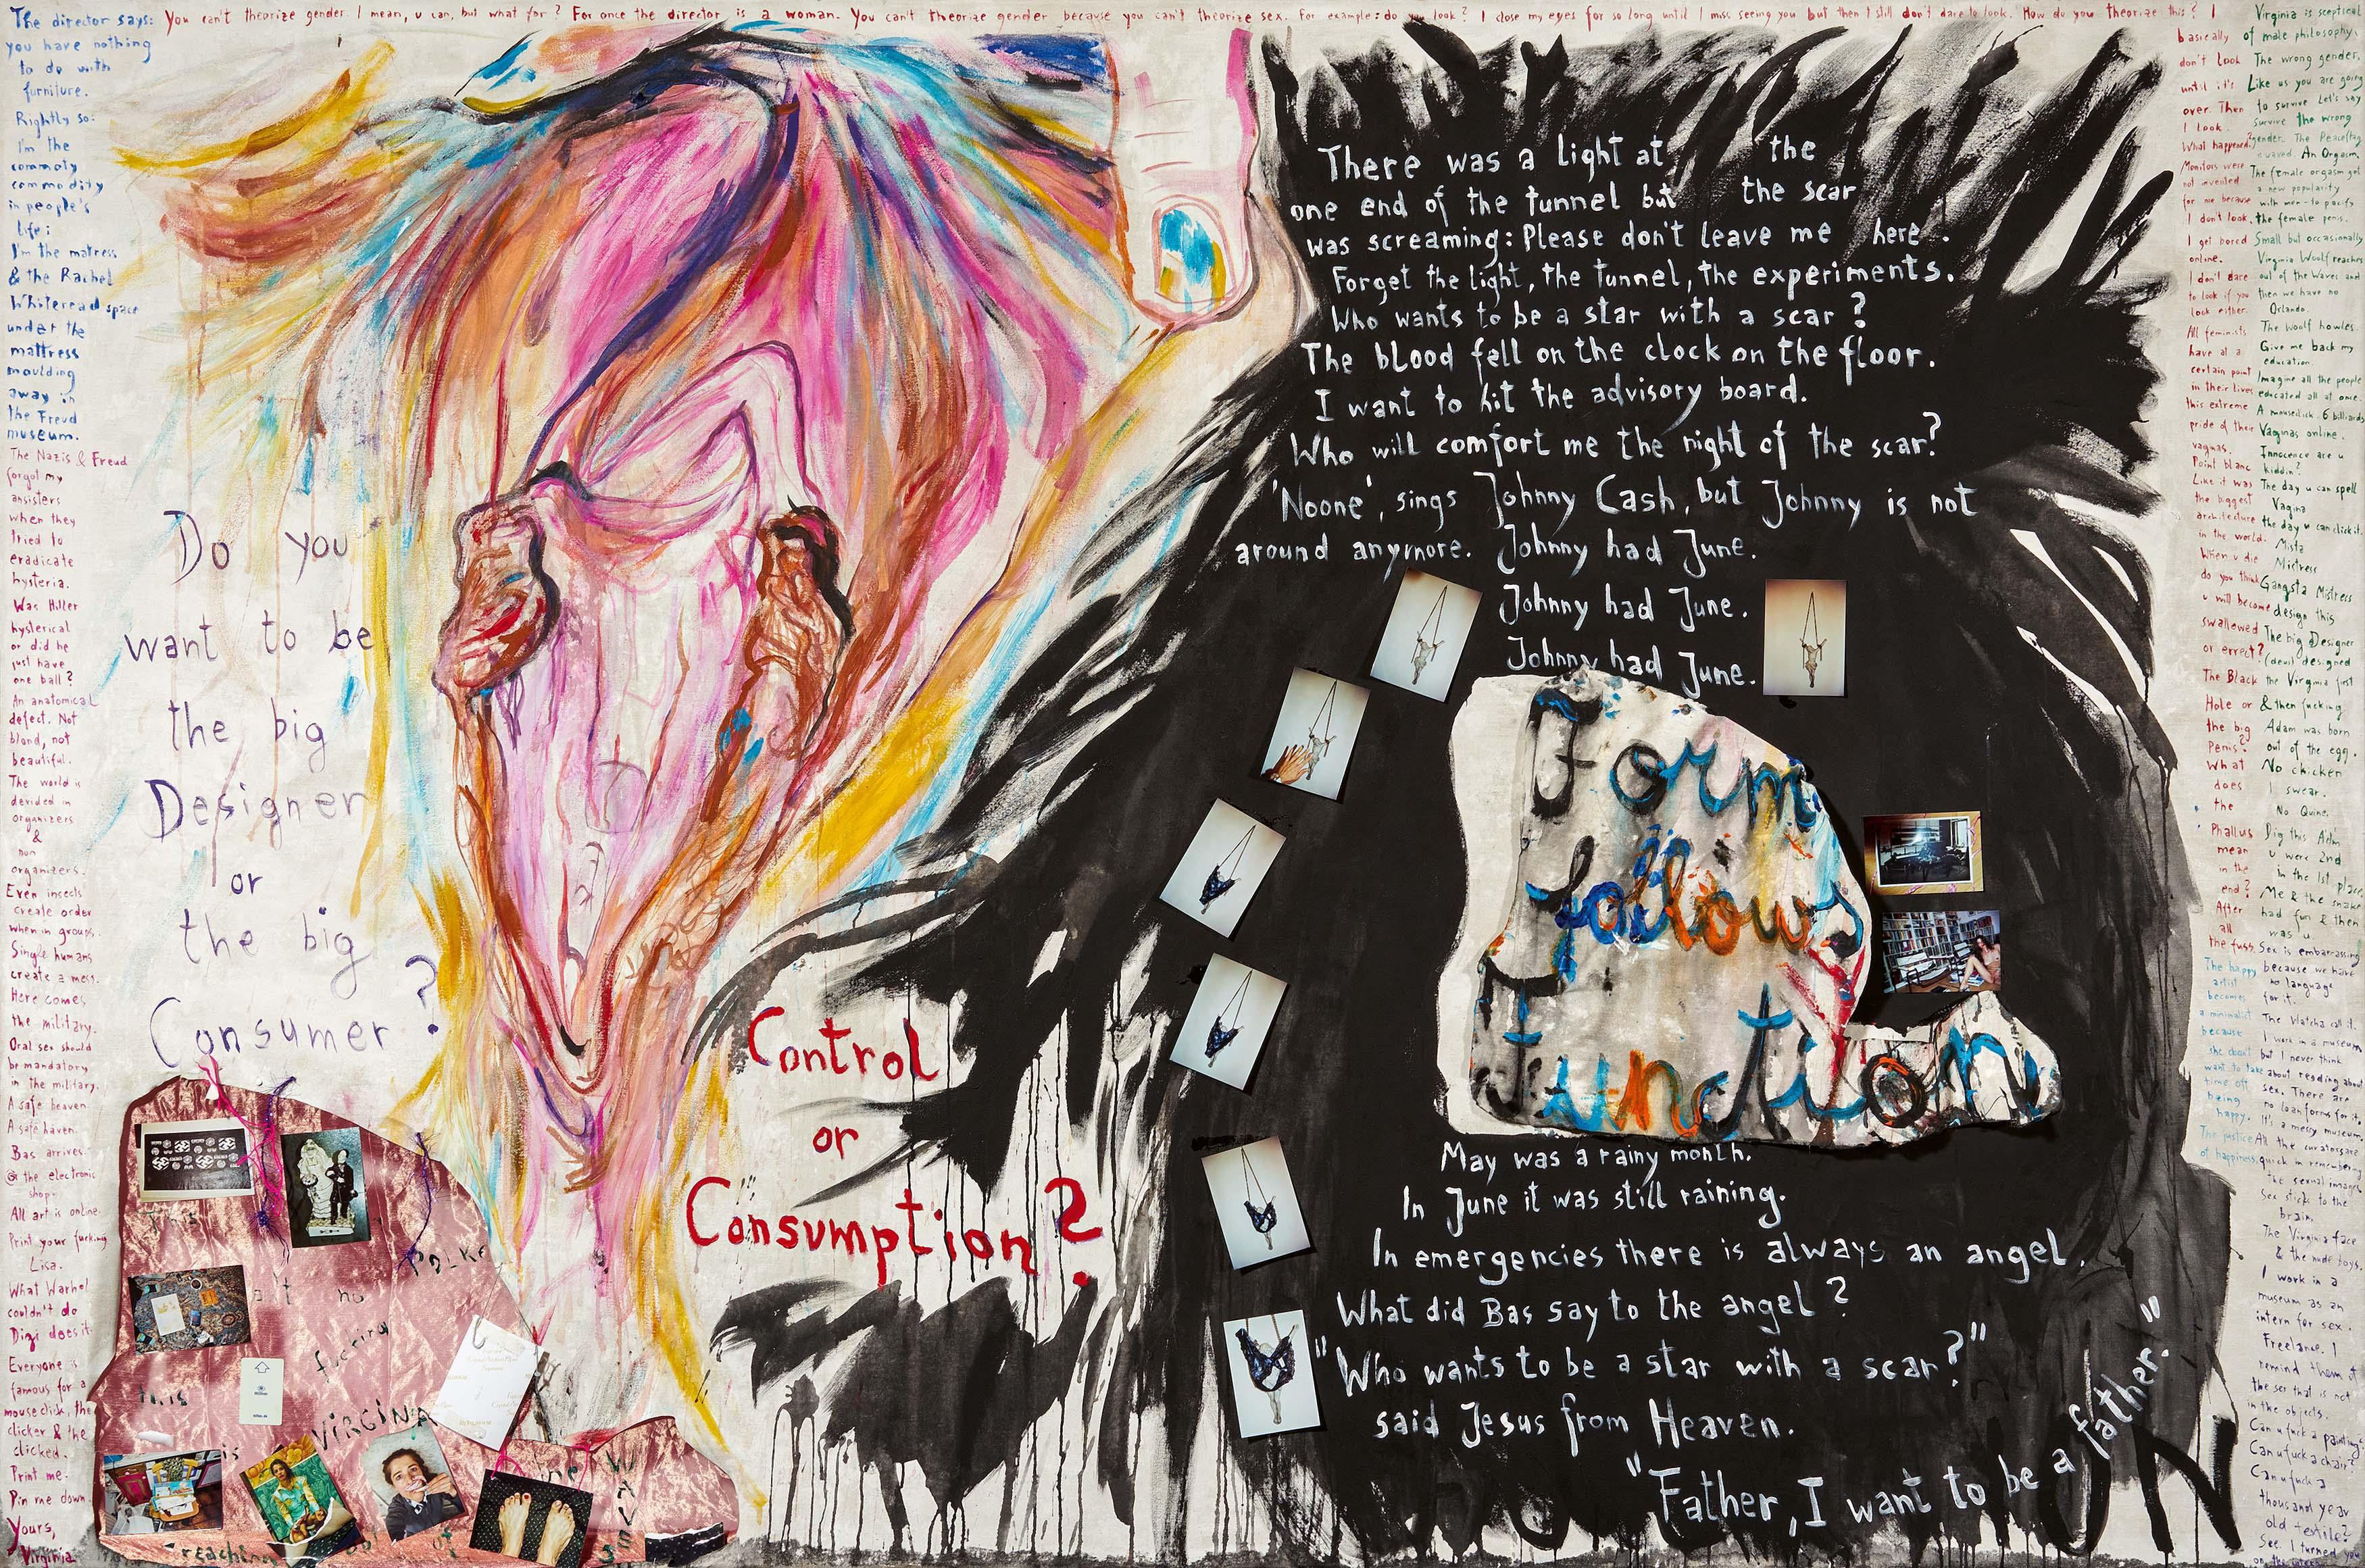 The director says: You can't theorize gender. I mean, u can, but what for? For once the director is a woman. You can't theorize gender because you can't theorize sex. For example: do you look? I close my eyes for so long until I miss seeing you but then I still don't dare to look. How do you theorize this? I
you have nothing
to do with
furniture.
Rightly so:
I'm the
commoty
commodity
in people's
life:
I'm the matress
& the Rachel
Whiteread space
under the
mattress
moulding
away in
the Freud
museum.
The Nazis & Freud
forgot my
ansisters
when they
tried to
eradicate
hysteria.
Was Hitler
hysterical
or did he
just have
one ball?
An anatomical
defect. Not
blond, not
beautiful.
The world is
devided in
organizers
&
non
organizers.
Even insects
create order
when in groups.
Single humans
create a mess.
Here comes
the military.
Oral sex should
be mandatory
in the military.
A safe heaven
A safe haven.
Bas arrives
@ the electronic
shop.
All art is online.
Print your fucking
Lisa.
What Warhol
couldn't do
Digi does it.
Everyone is
famous for a
mouse click, the
clicker & the
clicked.
Print me.
Pin me down.
Yours,
Virginia
Do you
want to be
the big
Designer
or
the big
Consumer?
This
POLKE
no
fucking
this
is
VIRGINA
the WAVES
reaching
of
Control
or
Consumption?
There was a light at the
one end of the tunnel but the scar
was screaming: Please don't leave me here.
Forget the light, the tunnel, the experiments.
Who wants to be a star with a scar?
The blood fell on the clock on the floor.
I want to hit the advisory board.
Who will comfort me the night of the scar?
'Noone', sings Johnny Cash, but Johnny is not
around anymore. Johnny had June.
Johnny had June.
Johnny had June.
Form
follows
Function
May was a rainy month.
In June it was still raining.
In emergencies there is always an angel.
What did Bas say to the angel?
"Who wants to be a star with a scar?"
said Jesus from Heaven.
"Father, I want to be a father."
basically
don't look
until it's
over. Then
I look.
What happened?
Monitors were
not invented
for me because
I don't look.
I get bored
online.
I don't dare
to look if you
look either.
All feminists
have at a
certain point
in their lives
this extreme
pride of their
vaginas.
Point blanc
Like it was
the biggest
architecture
in the world.
When u die
do you think
u will become
swallowed
or errect?
The Black
Hole or
the big
Penis?
What
does
the
Phallus
mean
in the
end?
After
all
the fuss
The happy
artist
becomes
a minimalist
because
she doesn't
want to take
time off
being
happy.
The justice
of happiness.
Virginia is sceptical
of male philosophy.
The wrong gender.
Like us you are going
to survive. Let's say
survive the wrong
gender. The Peaceflag
waved. An Orgasm
The female orgasm got
a new popularity
with men - to pacify
the female penis.
Small but occasionally
Virginia Woolf reaches
out of the Waves and
then we have no
Orlando.
The Woolf howles.
Give me back my
education.
Imagine all the people
educated all at once.
A mouseclick. 6 billiards
Vaginas online.
Innocence are u
kiddin?
The day u can spell
Vagina
the day u can click it.
Mista
Mistress
Gangsta Mistress
design this
The big Designer
(devil) designed
the Virginia first
& then fucking
Adam was born
out of the egg.
No chicken
I swear.
No Quine.
Dig this Adam
u were 2nd
in the 1st place
Me & the snake
had fun & then
was u
Sex is embarrassing
because we have
no language
for it.
The Watcha call it.
I work in a museum
but I never think
about reading about
sex. There are
no loan forms for it.
It's a messy museum.
All the curators are
quick in remembering
the sexual images.
Sex sticks to the
brain.
The Virginia face
& the nude boys.
I work in a
museum as an
intern for sex.
Freelance. I
remind them of
the sex that is not
in the objects.
Can u fuck a painting?
Can u fuck a chair?
Can u fuck a
thousand year
old textile?
See. I turned you
on